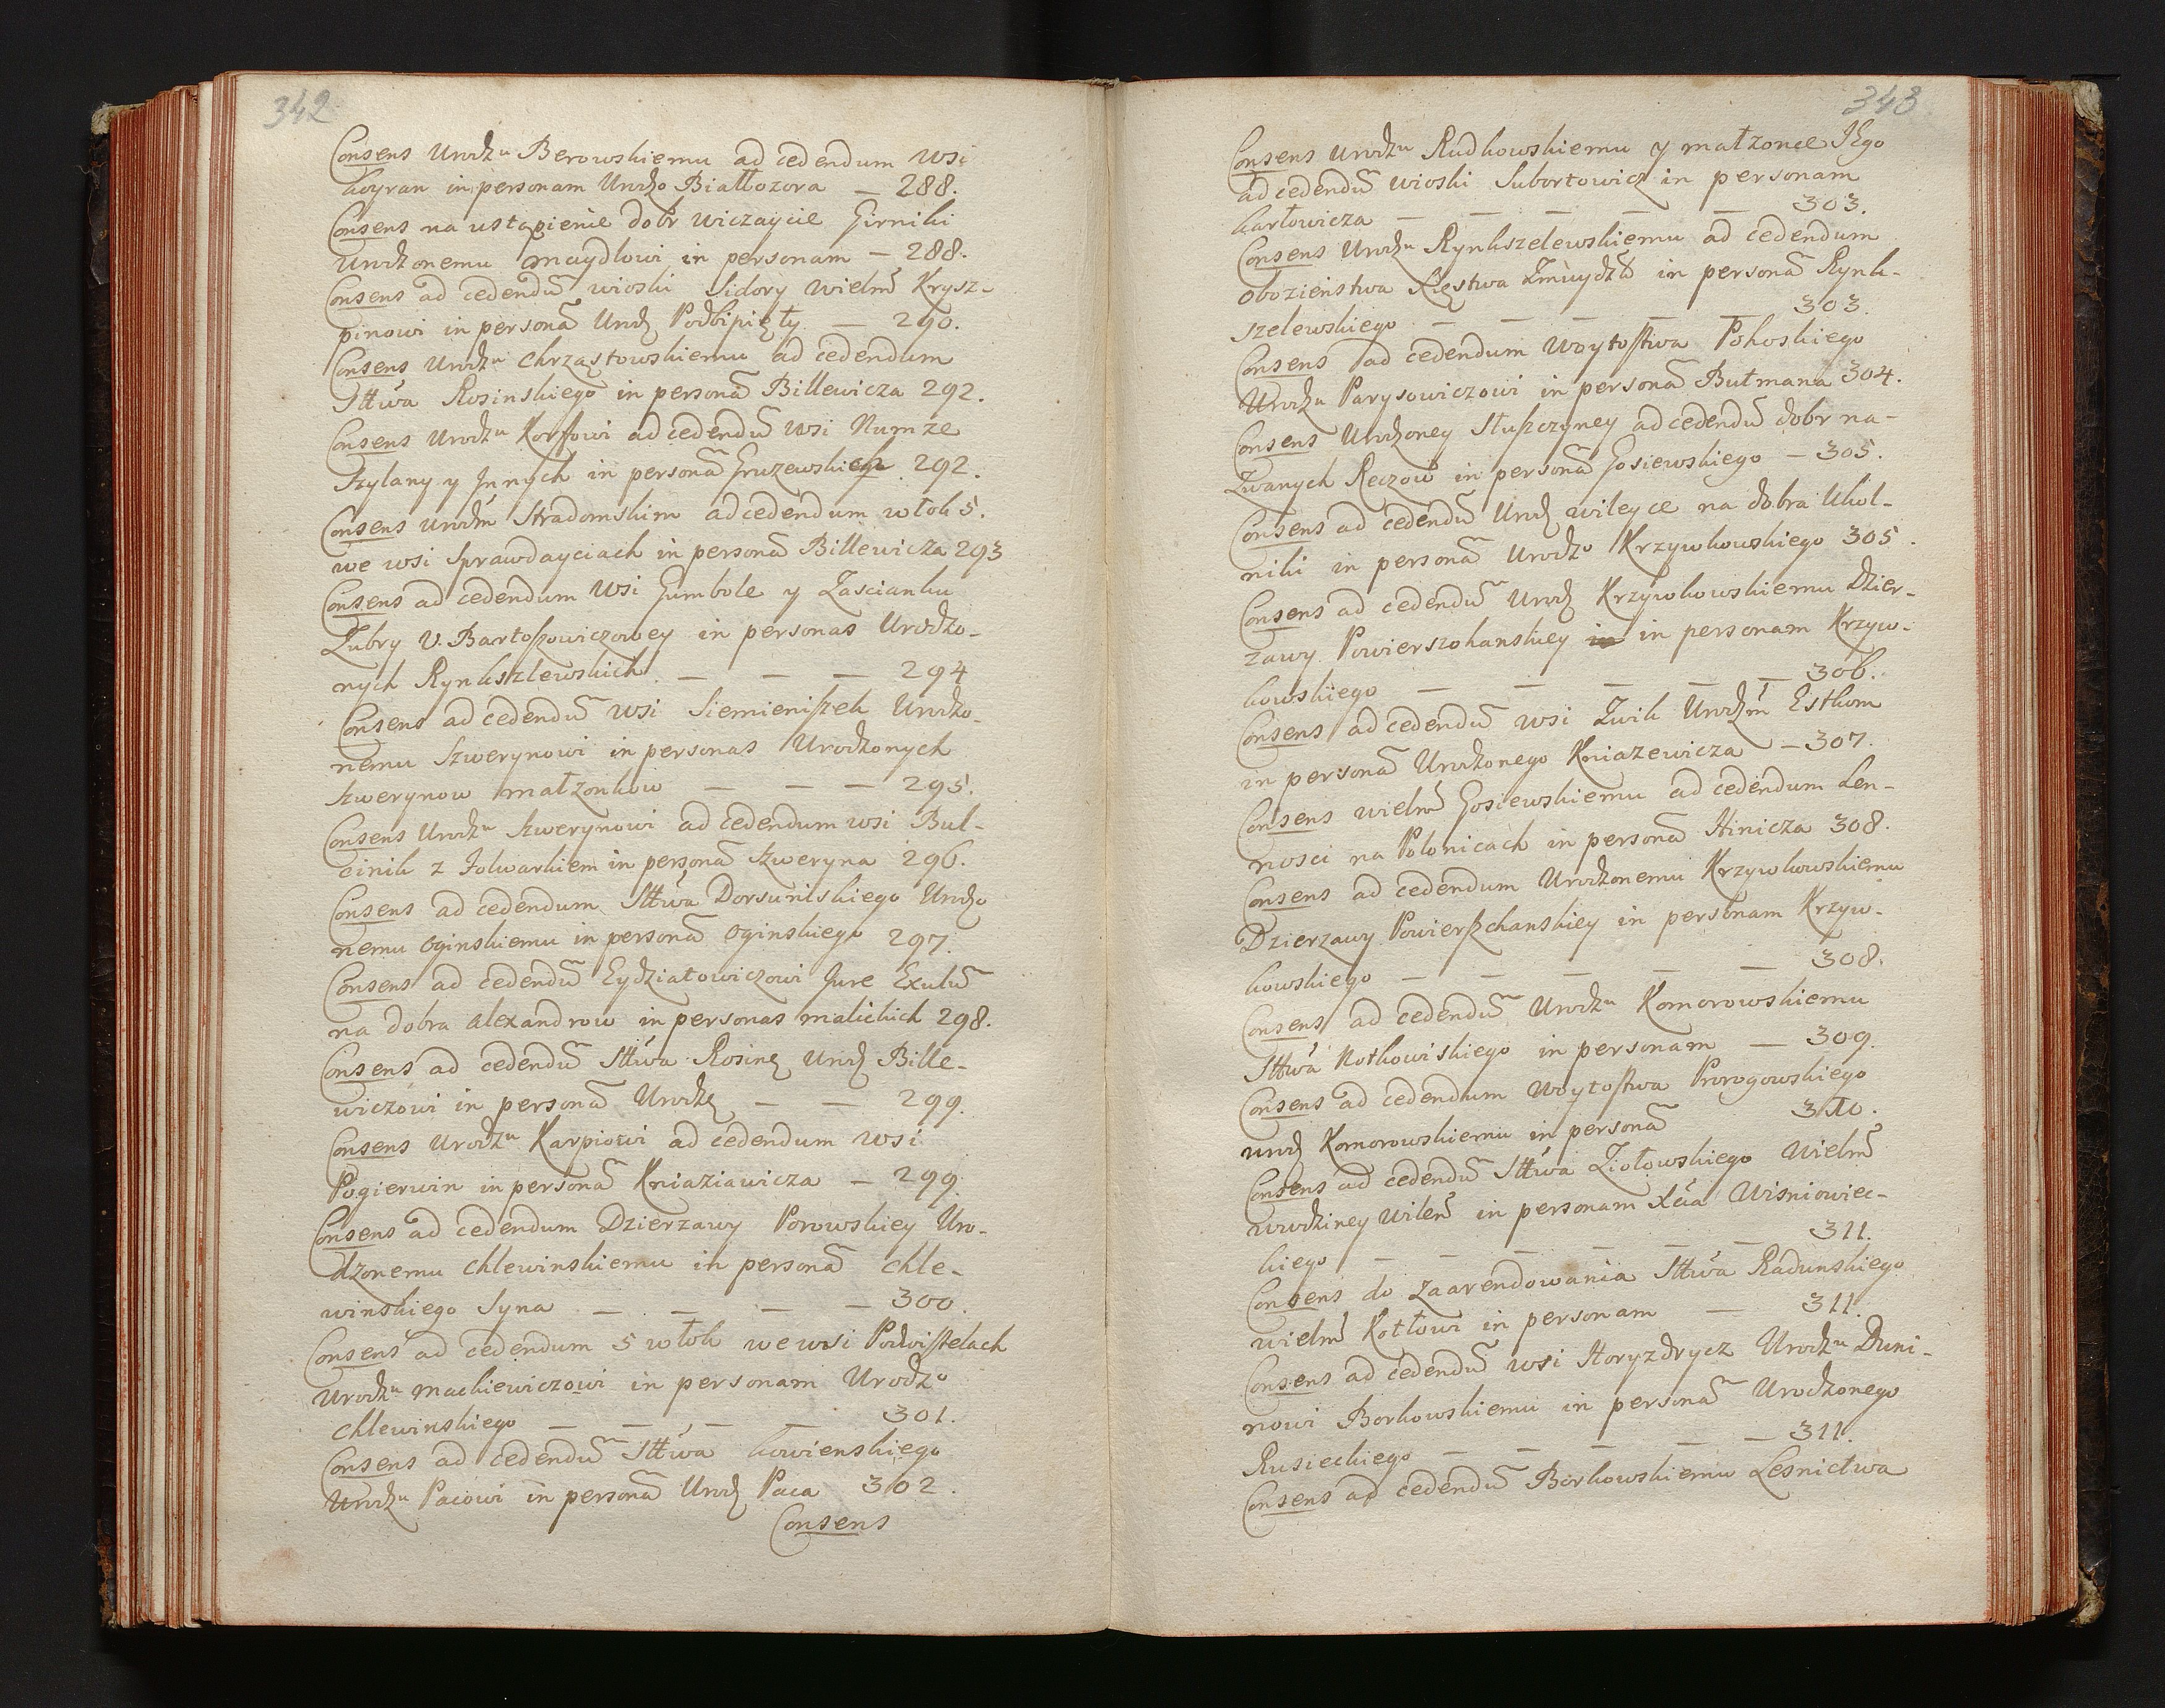 342
Consens Urodzu Berowskiemu ad cedendum wsi
Koyran in personam Urdzo Białłozora — 288.
Consens na ustąpienie dobr Wiczaycie Girniki
Urodzonemu Maydlowi in personam — 288.
Consens ad cedendū wioski Sidory Wielmō Krysz-
pinowi in personā Urodz Podbipięty — 290.
Consens Urodzu Chrząstowskiemu ad cedendum
Sttwa Rosinskiego in personā Billewicza 292.
Consens Urodzu Korffowi ad cedendū wsi Rumze
Szylany y Innych in personā Gruzewskiego 292.
Consens Urodzm Stradomskim ad cedendum włok 5.
we wsi Sprawdayciach in personā Billewicza 293
Consens ad cedendum wsi Gumbole y Zascianku
Zubry U. Bartoszowiczowey in personas Urodzo-
nych Rynkszlewskich — — — 294
Consens ad cedendū wsi Siemieniszek Urodzo-
nemu Szwerynowi in personas Urodzonych
Szwerynow małzonkow — — — 295.
Consens Urodzu Szwerynowi ad cedendum wsi Bul-
cinik z Folwarkiem in personā Szweryna 296.
Consens ad cedendum Sttwa Dorsuniskiego Urdzo
nemu Oginskiemu in personā Oginskiego 297.
Consens ad cedendū Eydziatowiczowi Jure Exulū
na dobra Alexandrow in personas Malickich 298.
Consens ad cedendū Sttwa Rosinę Urodz Bille-
wiczowi in personā Urodzę — — 299.
Consens Urodzu Karpiowi ad cedendum wsi
Pogierwin in personā Kniaziawicza — 299.
Consens ad cedendum Dzierzawy Porowskiey Uro-
dzonemu Chlewinskiemu in personā Chle-
winskiego Syna — — — — 300.
Consens ad cedendum 5 włok we wsi Podwisztelach
Urodzu Mackiewiczowi in personam Urodzo
Chlewinskiego — — — — 301.
Consens ad cedendū Sttwa Kowienskiego
Urodzu Pacowi in personā Urodz Paca 302.
Consens
343
Consens Urodzu Rudkowskiemu y małzonce JEgo
ad cedendū wioski Subortowicz in personam
Karłowicza — — — — — 303.
Consens Urodzu Rynkszelewskiemu ad cedendum
Obozienstwa Xięstwa Zmuydz̄o in personā Rynk-
szelewskiego — — — — — 303.
Consens ad cedendum Woytostwa Pohoskiego
Urodzu Parysowiczowi in personā Butmana 304.
Consens Urodzoney Słuszczyney ad cedendū dobr na-
Zwanych Reczow in personā Gosiewskiego — 305.
Consens ad cedendū Urodz Wileyce na dobra Ukol-
niki in personā Urodzo Krzywkowskiego 305.
Consens ad cedendū Urodz Krzywkowskiemu Dzier-
zawy Powierszohanskiey in in personam Krzyw-
kowskiego — — — — — 306.
Consens ad cedendū wsi Zwik Urodzm Estkom
in personā Urodzonego Kniazewicza — 307.
Consens Wielmō Gosiewskiemu ad cedendum Len-
nosci na Polonicach in personā Hinicza 308.
Consens ad cedendum Urodzonemu Krzywkowskiemu
Dzierzawy Powierszchanskiey in personam Krzyw-
kowskiego — — — — — 308.
Consens ad cedendū Urodzu Komorowskiemu
Sttwa Notkowiskiego in personam — 309.
Consens ad cedendum Woytostwa Prorogowskiego
Urodz Komorowskiemu in personā 310.
Consens ad cedendū Sttwa Ziołowskiego Wielmō
Wwodziney Wileń in personam Xcia Wisniowiec-
kiego — — — — — — 311.
Consens do Zaarendowania Sttwa Radunskiego
Wielmō Kotłowi in personam — 311.
Consens ad cedendū wsi Horyzdrycz Urodzu Duni-
nowi Borkowskiemu in personā Urodzonego
Rusieckiego — — — — — 311.
Consens ad cedendū Borkowskiemu Lesnictwa